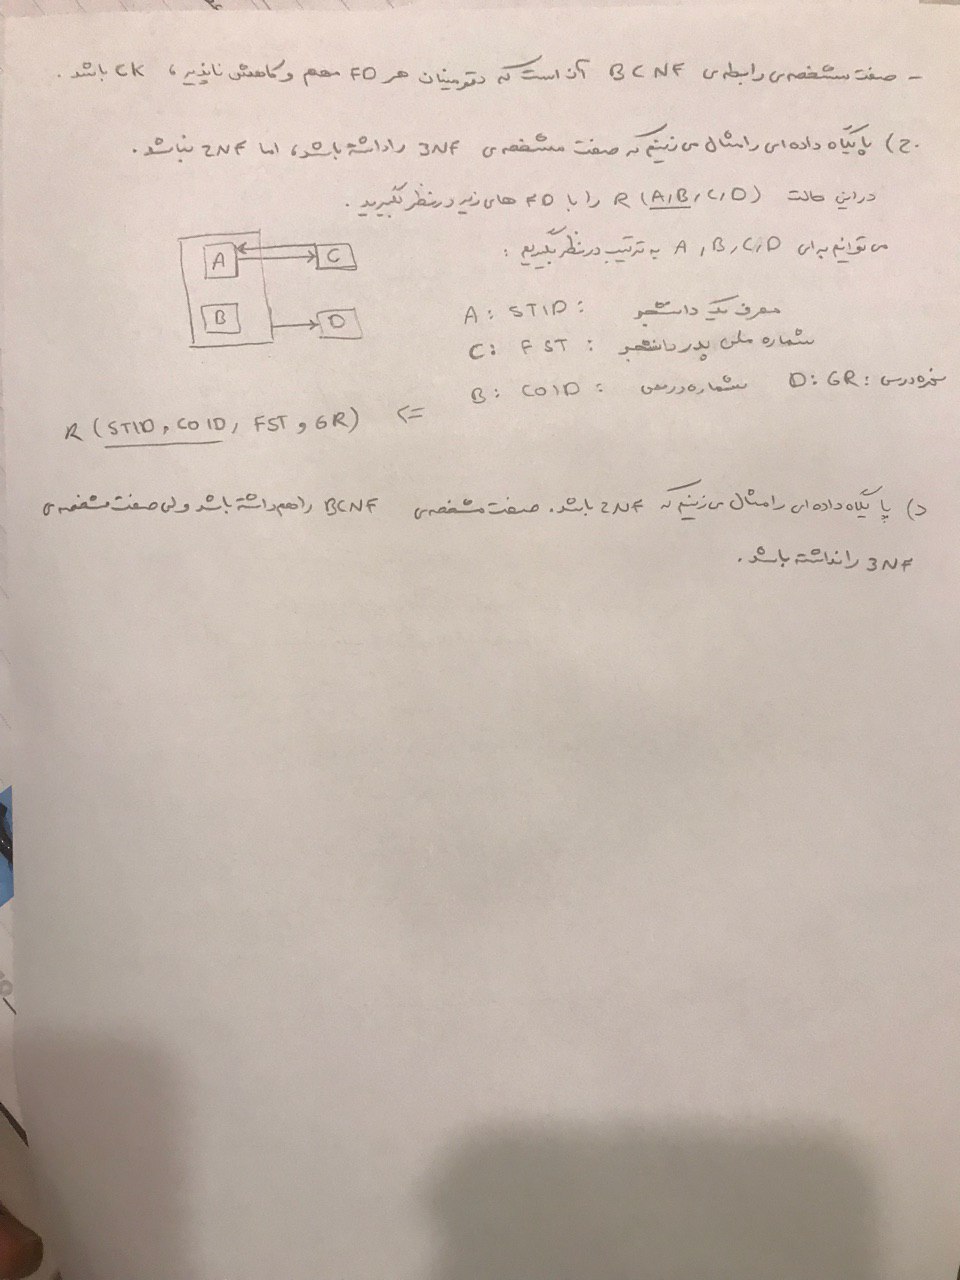 - صفت مشخصه‌ی رابطه‌ی BCNF آن است که دترمینان هر FD مهم و کاهش ناپذیر، CK باشد.
ج) پایگاه داده‌ای را مثال می‌زنیم که صفت مشخصه‌ی 3NF را داشته باشد، اما 2NF نباشد.
در این حالت R (A,B,C,D) را با FD های زیر در نظر بگیرید.
می‌توانیم برای A,B,C,D به ترتیب در نظر بگیریم:
A C
B D
A: STID: معرف یک دانشجو
C: FST: شماره ملی پدر دانشجو
B: COID: شماره درس D: GR: نمره درس
R (STID, COID, FST, GR) <=
د) پایگاه داده‌ای را مثال می‌زنیم که 2NF باشد. صفت مشخصه‌ی BCNF را هم داشته باشد ولی صفت مشخصه‌ی
3NF را نداشته باشد.